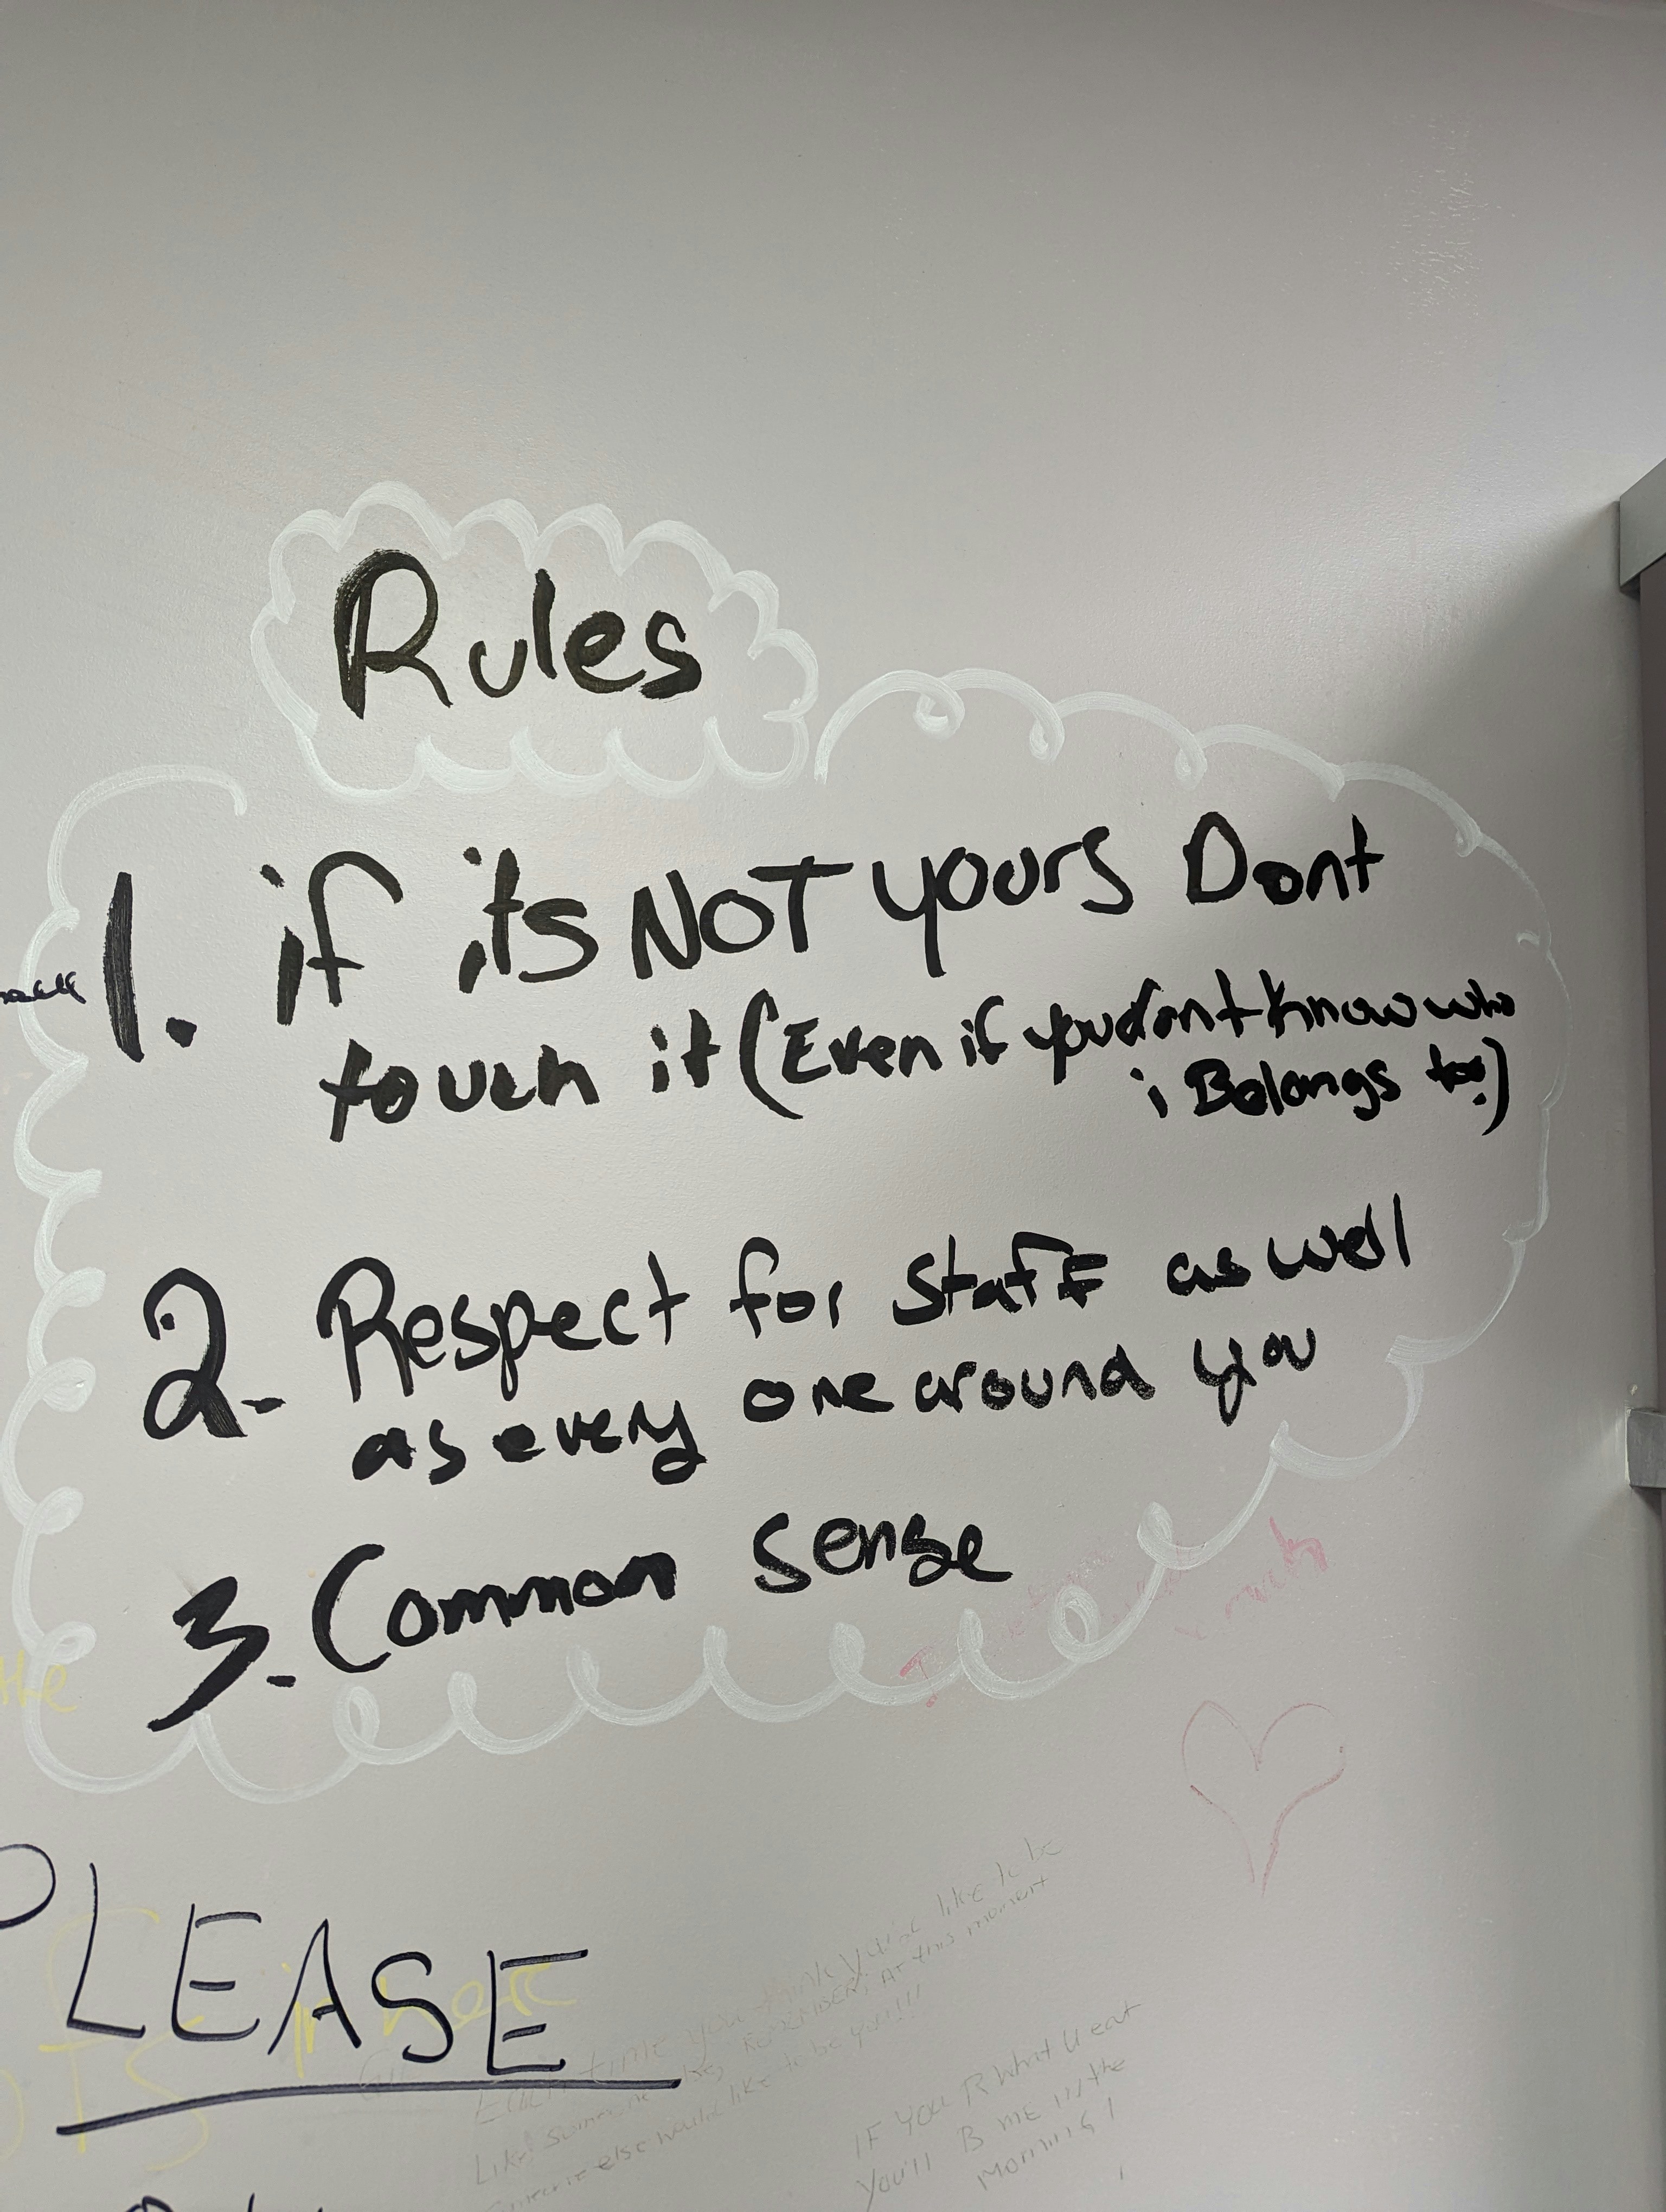 Rules
1. if its NOT yours Dont
touch it (Even if you dont know who
i Belongs to!)
2. Respect for Staff as well
as every one around you
3. Common sense
the
much
PLEASE
in here
Each time you think you'd like to be
Like someone else, REMEMBER; AT this moment
someone else would like to be you!!!!
IF YOU R What U eat
You'll B ME IN the
MORNING!